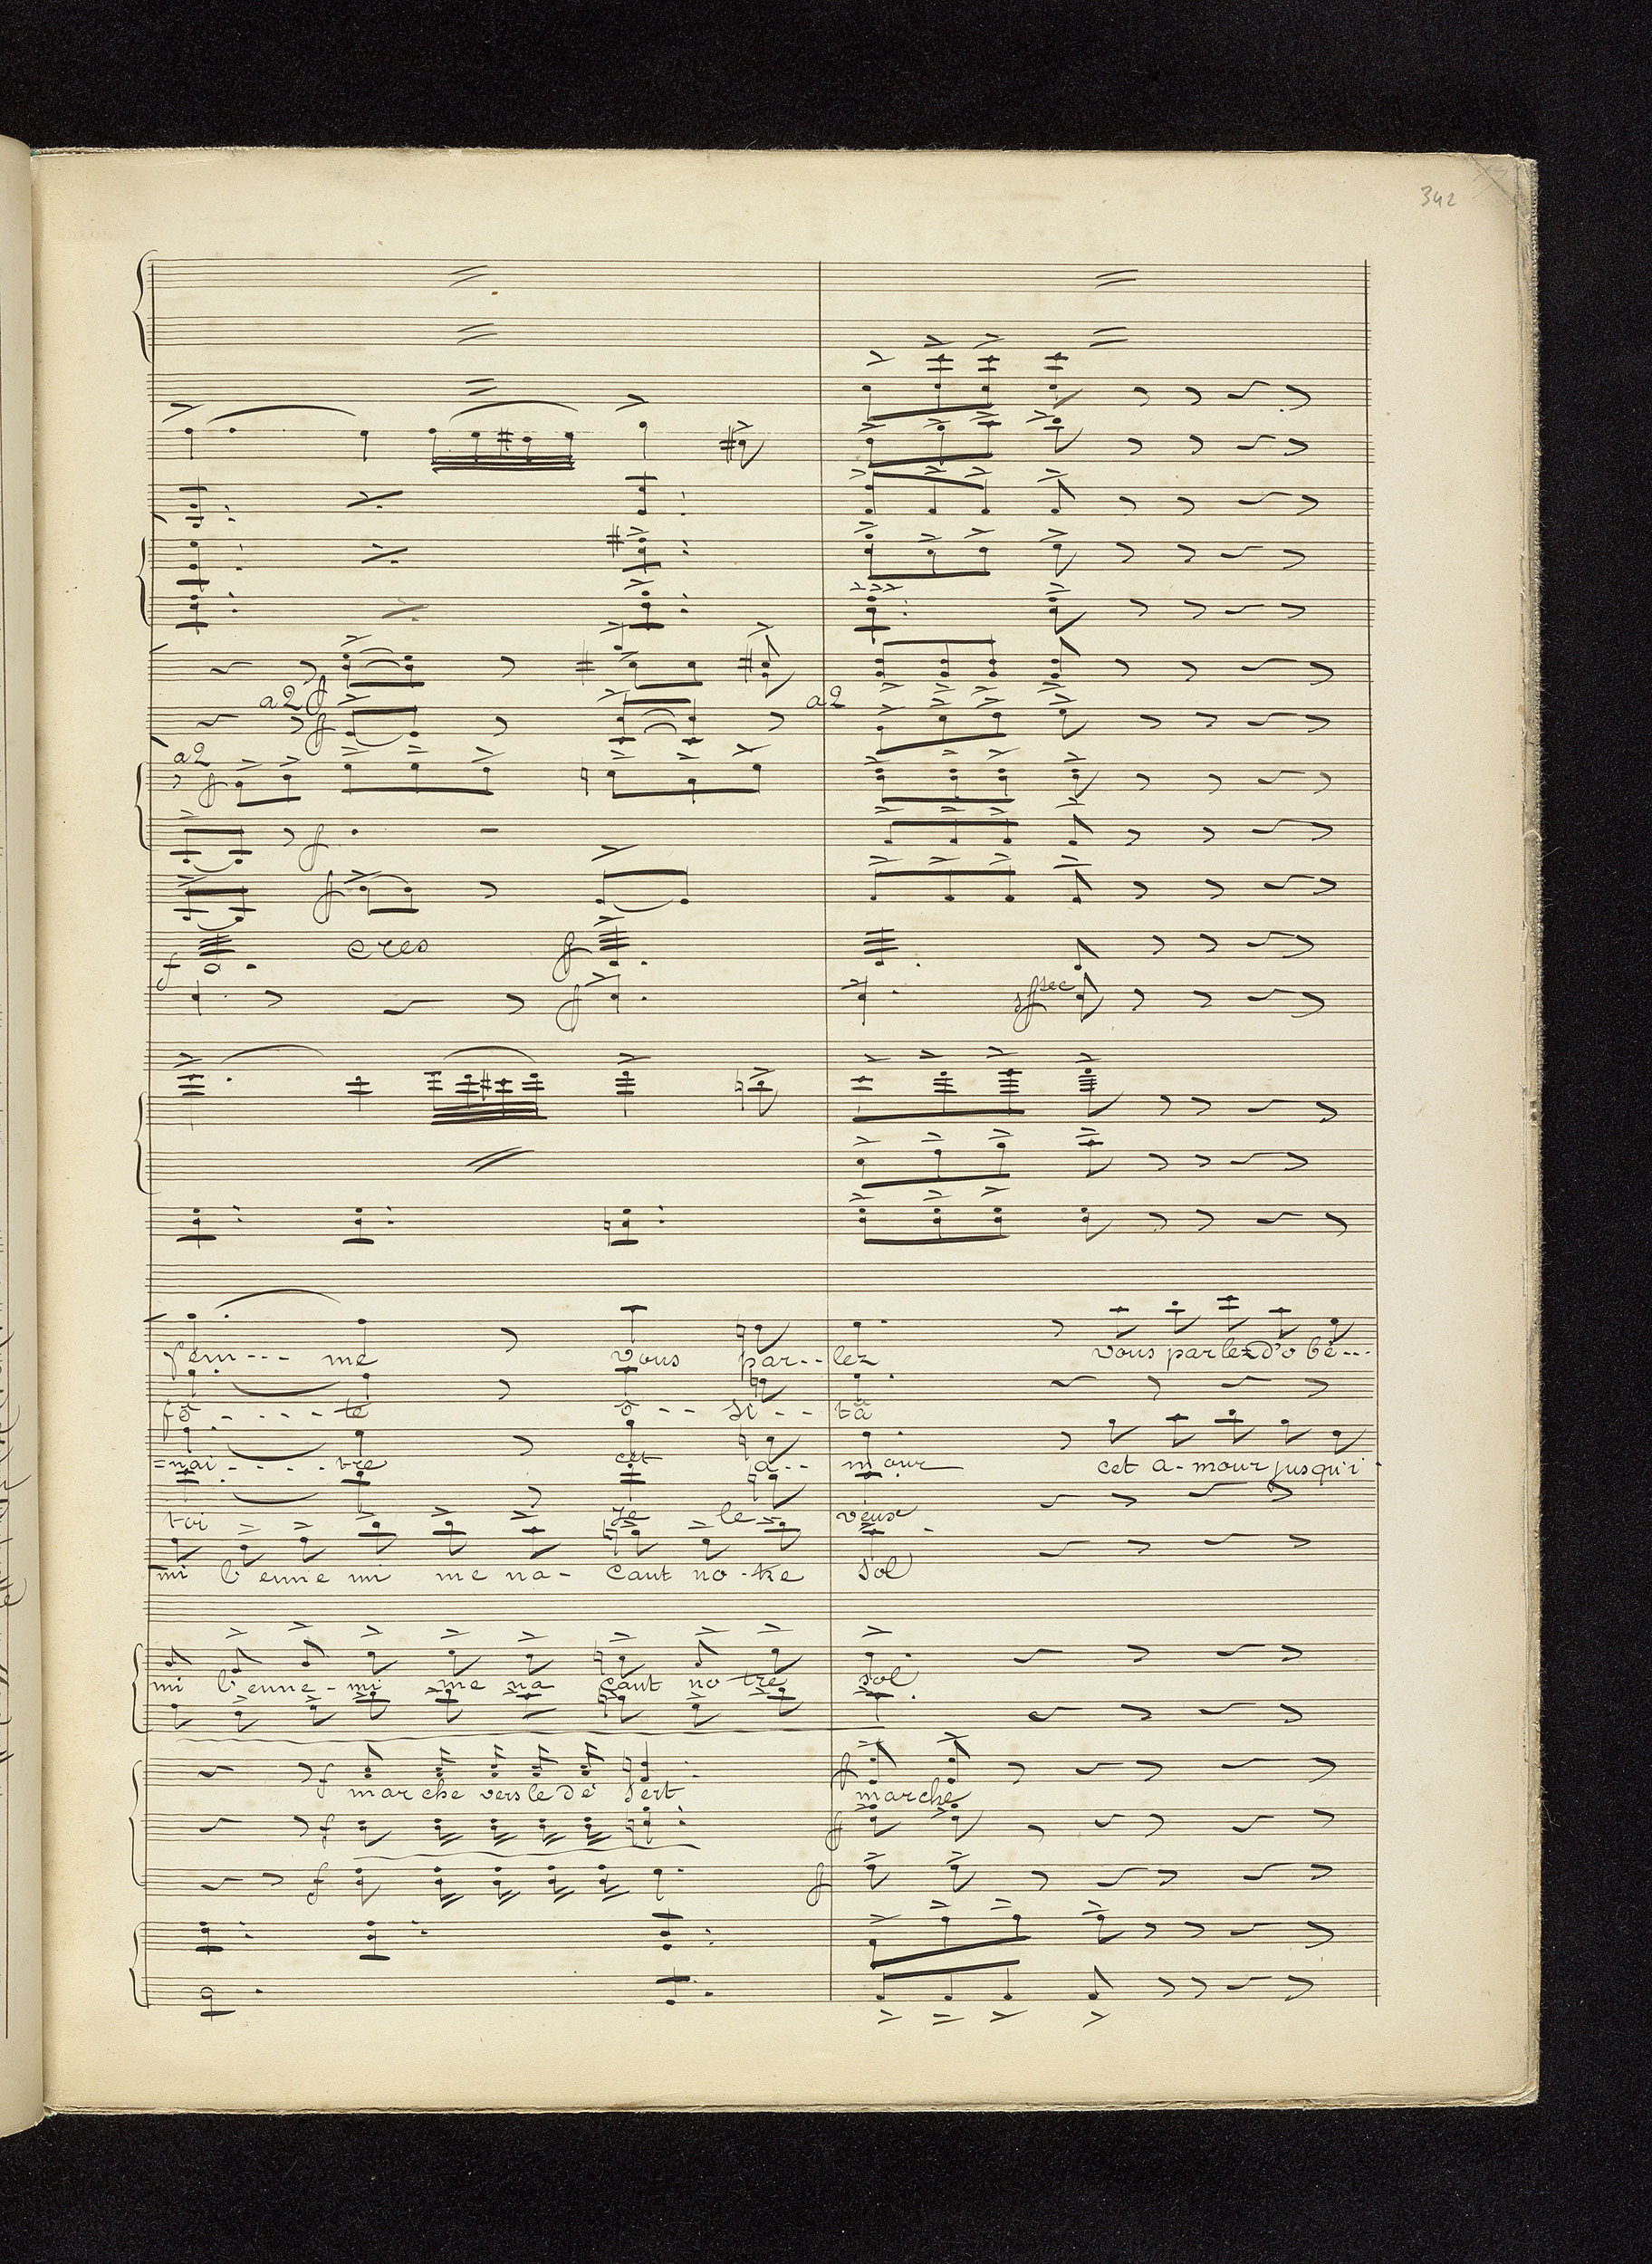 342
a2 ff
a2
f
a2
f
f
ff
f cres ff
ff sffsec
fem--- me vous par-- lez vous parlez d'o bé---
fô - - - - te ô -- si -- tă
=nai - - - - tre cet a-- mour cet a-mour jusqu'i
toi je le veux
mi l'enne mi me na- çant no-tre sol
mi l'enne-mi me na çant no tre sol
f marche vers le dé sert f marche
f ff
f ff